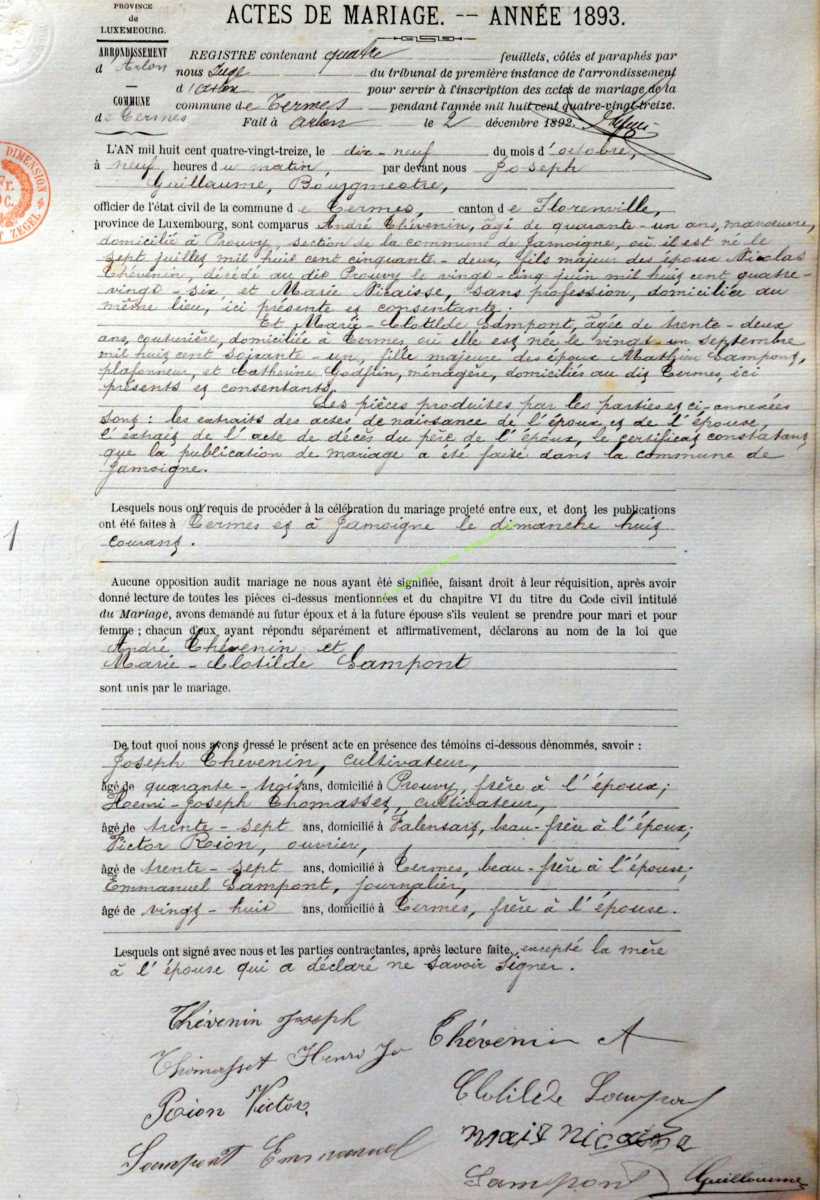 PROVINCE
de
LUXEMBOURG.
ARRONDISSEMENT
d'Arlon
COMMUNE
de Termes
ACTES DE MARIAGE. -- ANNÉE 1893.
REGISTRE contenant quatre feuillets, côtés et paraphés par
nous Juge du tribunal de première instance de l'arrondissement
d'Arlon pour servir à l'inscription des actes de mariage de la
commune de Termes pendant l'année mil huit cent quatre-vingt-treize.
Fait à Arlon le 2 décembre 1892.
DIMENSION
ZEGEL
L'AN mil huit cent quatre-vingt-treize, le dix-neuf du mois d'octobre,
à neuf heures du matin, par devant nous Joseph
Guillaume, Bourgmestre,
officier de l'état civil de la commune de Termes, canton de Florenville,
province de Luxembourg, sont comparus André Thévenin, âgé de quarante-un ans, manœuvre,
domicilié à Prouvy, section de la commune de Jamoigne, où il est né le
sept juillet mil huit cent cinquante-deux, fils majeur des époux Nicolas
Thévenin, décédé au dit Prouvy le vingt-cinq juin mil huit cent quatre-
vingt-six, et Marie Nicaisse, sans profession, domiciliée au
même lieu, ici présente et consentante;
Et Marie-Clotilde Lampont, âgée de trente-deux
ans, couturière, domiciliée à Termes, où elle est née le vingt-un septembre
mil huit cent soixante-un, fille majeure des époux Mathieu Lampont,
plafonneur, et Catherine Godfrin, ménagère, domiciliés au dit Termes, ici
présents et consentants.
Les pièces produites par les parties et ci-annexées
sont: les extraits des actes de naissance de l'époux et de l'épouse,
l'extrait de l'acte de décès du père de l'époux, le certificat constatant
que la publication de mariage a été faite dans la commune de
Jamoigne.
Lesquels nous ont requis de procéder à la célébration du mariage projeté entre eux, et dont les publications
ont été faites à Termes et à Jamoigne le dimanche huit
courant.
1
Aucune opposition audit mariage ne nous ayant été signifiée, faisant droit à leur réquisition, après avoir
donné lecture de toutes les pièces ci-dessus mentionnées et du chapitre VI du titre du Code civil intitulé
du Mariage, avons demandé au futur époux et à la future épouse s'ils veulent se prendre pour mari et pour
femme; chacun d'eux ayant répondu séparément et affirmativement, déclarons au nom de la loi que
André Thévenin et
Marie-Clotilde Lampont
sont unis par le mariage.
De tout quoi nous avons dressé le présent acte en présence des témoins ci-dessous dénommés, savoir :
Joseph Thévenin, cultivateur,
âgé de quarante-trois ans, domicilié à Prouvy, frère à l'époux;
Henri-Joseph Thomasset, cultivateur,
âgé de trente-sept ans, domicilié à Valensart, beau-frère à l'époux;
Victor Rion, ouvrier,
âgé de trente-sept ans, domicilié à Termes, beau-frère à l'épouse;
Emmanuel Lampont, journalier,
âgé de vingt-huit ans, domicilié à Termes, frère à l'épouse.
Lesquels ont signé avec nous et les parties contractantes, après lecture faite, excepté la mère
à l'épouse qui a déclaré ne savoir signer.
Thévenin Joseph
Thomasset Henri Jo Thévenin A
Rion Victor Clotilde Lampont
Lampont Emmanuel
Lampont Guillaume